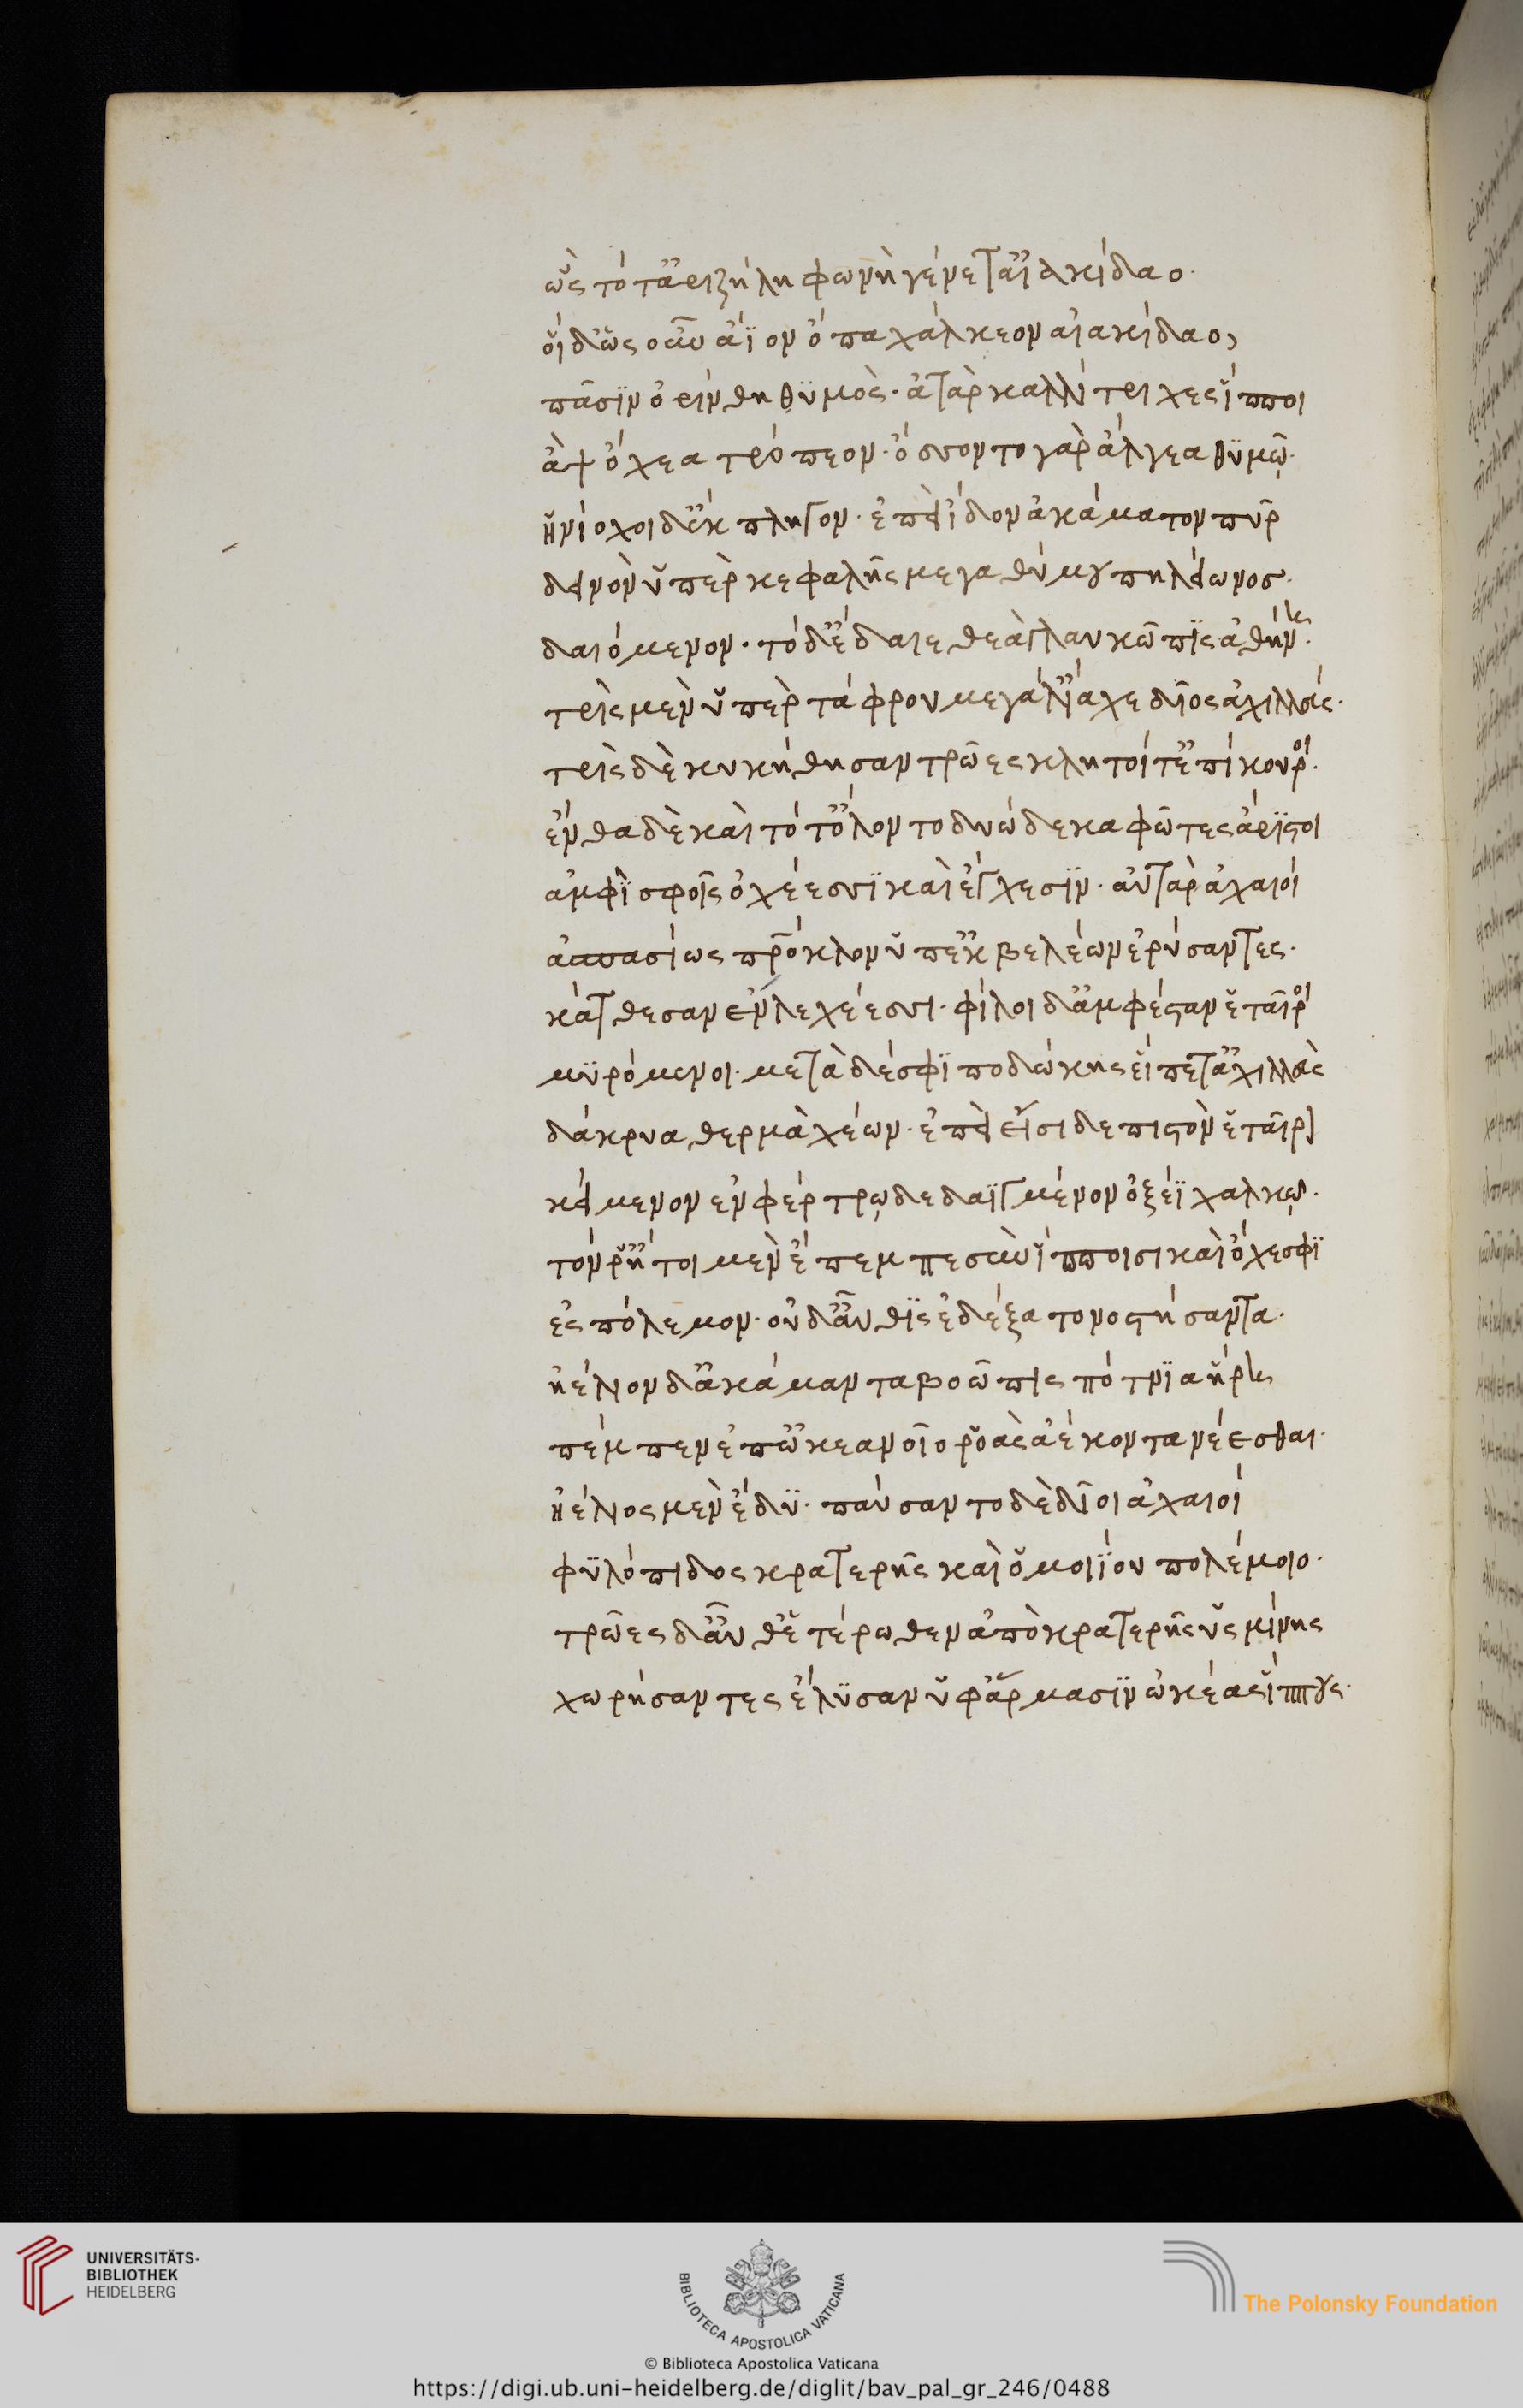 ὣς τότ' ἀριζήλη φωνὴ γένετ' αἰακίδαο·
οἳ δ' ὡς οὖν ἄϊον ὄπα χάλκεον αἰακίδαο,
πᾶσιν ὀρίνθη θυμὸς· ἀτὰρ καλλίτριχες ἵπποι
ἂψ ὄχεα τρόπεον· ὄσσοντο γὰρ ἄλγεα θυμῷ·
ἡνίοχοι δ' ἔκπληγον· ἐπεὶ ἴδον ἀκάματον πῦρ
δεινὸν ὑπὲρ κεφαλῆς μεγαθύμου πηλείωνος·
δαιόμενον· τὸ δ' ἔδαιε θεὰ γλαυκῶπις ἀθήνη·
τρὶς μὲν ὑπὲρ τάφρου μεγάλ' ἴαχε δῖος ἀχιλλεύς·
τρὶς δὲ κυκήθησαν τρῶες κλητοί τ' ἐπίκουροι·
ἔνθα δὲ καὶ τότ' ὄλοντο δυώδεκα φῶτες ἄριστοι
ἀμφὶ σφοῖς ὀχέεσσι καὶ ἔγχεσιν· αὐτὰρ ἀχαιοί
ἀσπασίως πάτροκλον ὑπ' ἐκ βελέων ἐρύσαντες·
κάτθεσαν ἐν λεχέεσσι· φίλοι δ' ἀμφέσταν ἑταῖροι
μυρόμενοι· μετὰ δέ σφι ποδώκης εἵπετ' ἀχιλλεὺς
δάκρυα θερμὰ χέων· ἐπεὶ εἴσιδε πιστὸν ἑταῖρον
κείμενον ἐν φέρτρῳ δεδαϊγμένον ὀξέϊ χαλκῷ·
τόν ῥ' ἤτοι μὲν ἔπεμπε σὺν ἵπποισι καὶ ὄχεσφι
ἐς πόλεμον· οὐδ' αὖθις ἐδέξατο νοστήσαντα·
ἠέλιον δ' ἀκάμαντα βοῶπις πότνια ἥρη
πέμπεν ἐπ' ὠκεανοῖο ῥοὰς ἀέκοντα νέεσθαι·
ἠέλιος μὲν ἔδυ· παύσαντο δὲ δῖοι ἀχαιοί
φυλόπιδος κρατερῆς καὶ ὁμοιΐου πολέμοιο·
τρῶες δ' αὖθ' ἑτέρωθεν ἀπὸ κρατερῆς ὑσμίνης
χωρήσαντες ἔλυσαν ὑφ' ἅρμασιν ὠκέας ἵππους·
UNIVERSITÄTS-
BIBLIOTHEK
HEIDELBERG
BIBLIOTECA APOSTOLICA VATICANA
The Polonsky Foundation
© Biblioteca Apostolica Vaticana
https://digi.ub.uni-heidelberg.de/diglit/bav_pal_gr_246/0488